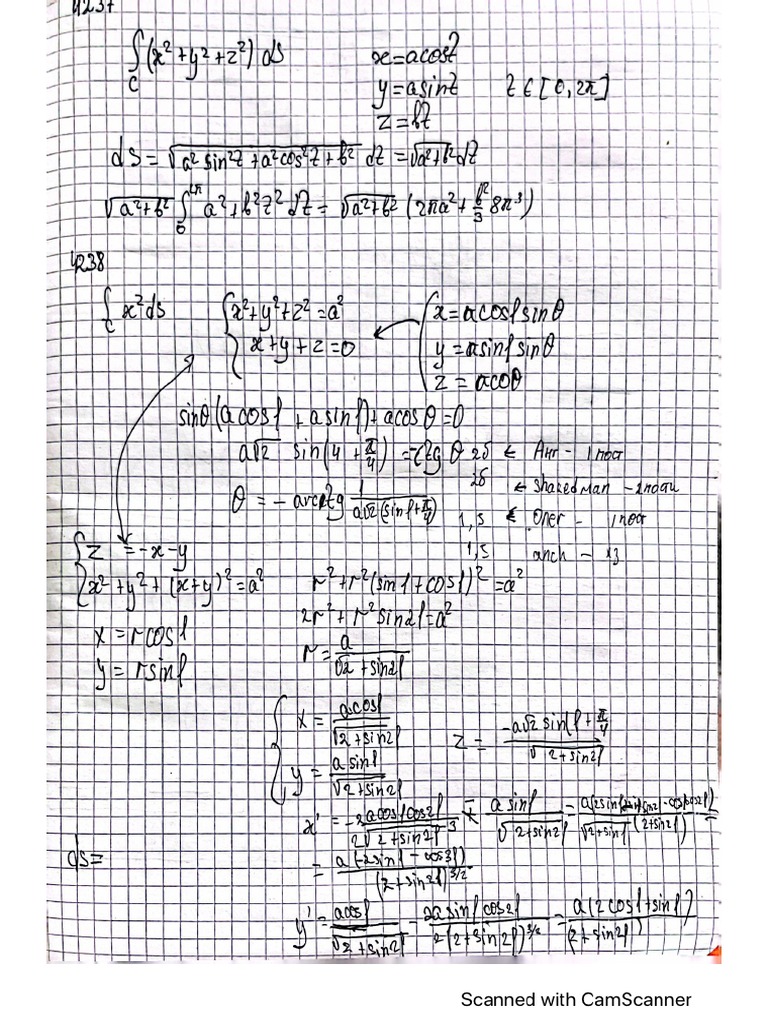 4237
∫_C (x²+y²+z²) ds   x=acost
y=asint   t∈[0,2π]
z=bt
ds=√(a²sin²t+a²cos²t+b²) dt=√(a²+b²)dt
√(a²+b²) ∫_0^{2π} a²+b²t² dt=√(a²+b²) (2πa²+b²/3 8π³)
4238
∫_C x²ds   { x²+y²+z²=a²   { x=acosφsinθ
x+y+z=0   y=asinφsinθ
z=acoθ
sinθ(acosφ+asinφ)+acosθ=0
a√2 sin(φ+π/4)=-ctgθ   2б ← Анг - 1пост
θ=-arcctg 1/(a√2(sinφ+π/4))   2б ← sharedman - 2пости
1,5 ← Опер - 1пост
{ z=-x-y   1,5   anch - x3
x²+y²+(x+y)²=a²   r²+r²(sinφ+cosφ)²=a²
2r²+r²sin2φ=a²
x=rcosφ   r=a/√(2+sin2φ)
y=rsinφ
{ x=acosφ/√(2+sin2φ)   z=-a√2sin(φ+π/4)/√(2+sin2φ)
y=asinφ/√(2+sin2φ)
x'=-2acosφcos2φ/(2√(2+sin2φ)³) - asinφ/√(2+sin2φ)
ds=   =a(-2sinφ-cos3φ)/(2+sin2φ)^{3/2}
y'=acosφ/√(2+sin2φ) - 2asinφcos2φ/(2(2+sin2φ)^{3/2})=a(2cosφ+sinφ)/(2+sin2φ)
Scanned with CamScanner